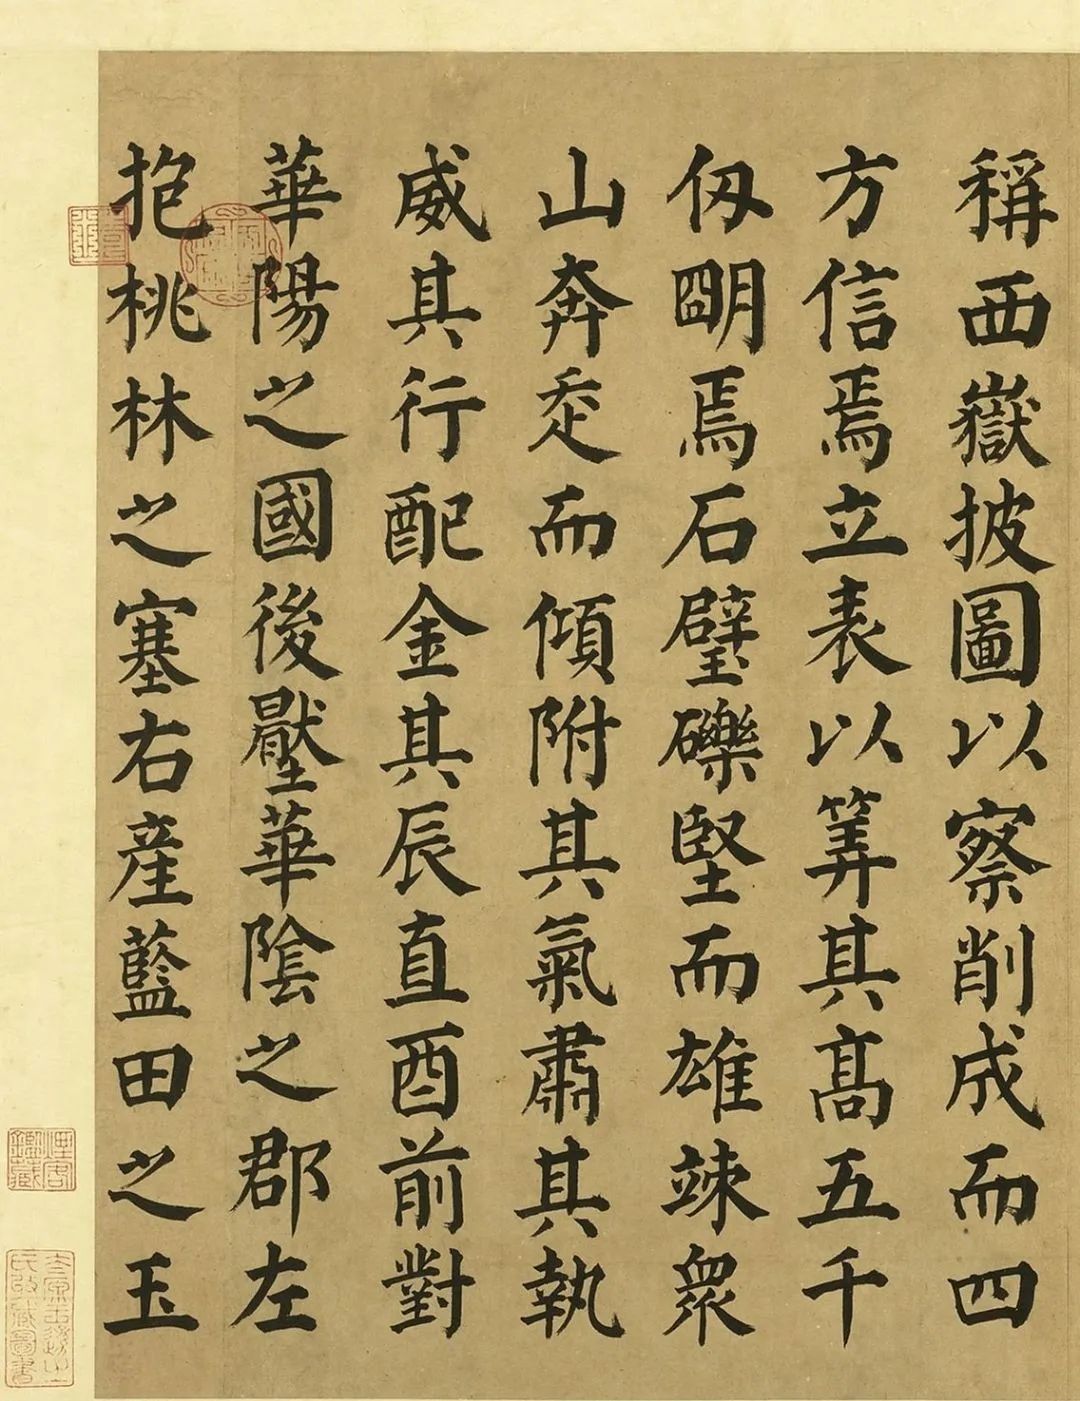 稱西嶽披圖以察削成而四
方信焉立表以筭其髙五千
仭朙焉石壁礫堅而雄竦衆
山奔走而傾附其氣肅其執
威其行配金其辰直酉前對
華陽之國後壓華陰之郡左
抱桃林之塞右産藍田之玉
太原王遜之
氏收藏圖書